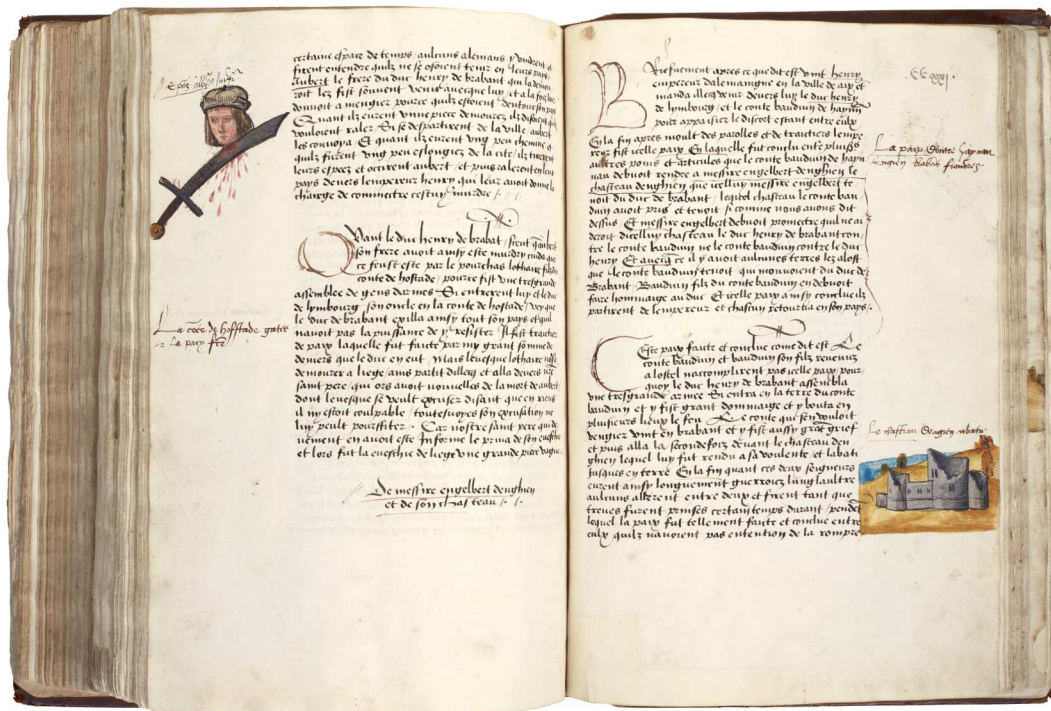 certaine espace de temps aulcuns alemans y vindrent
firent entendre quilz ne se osoient tenir en leurs pays
aubert le frere du duc henry de brabant qui la demou
roit lez fist souvent venir avecque luy et a la fois leur
donnoit a mengier pource quilz estoient dentour son pays
Quant ilz eurent une piece demourez ilz disoient quilz
vouloient raler Si se despartirent de la ville aubert
les convoya Et quant ilz eurent ung peu chemine et
quilz furent ung peu eslongiez de la cite ilz tirerent
leurs espeez et occirent aubert et puis ralerent en leur
pays devers lempereur henry qui leur avoit donne la
charge de commectre cestuy murdre
Quant le duc henry de brabat sceut quaubert
son frere avoit ainsy este murdry cuida que
ce feust este par le pourchas lothaire filz du
conte de hostade pource fist une tresgrande
assemblee de gens darmes Si entrerent luy et le duc
de lymbourg son oncle en la conte de hostade
le duc de brabant exilla ainsy tout son pays et quil
navoit pas la puissance de y resister Il fist traictier
de paix laquelle fut faicte par my grant somme de
deniers que le duc en eut Mais levesque lothaire
demourer a liege ains partit dillecq et alla devers nre
saint pere qui ors avoit nouvelles de la mort de aubert
dont levesque se veult excuser disant que en riens
il ny estoit coulpable toutesvoyes son excusation ne
luy peult pourffiter Car nostre saint pere qui de
vement en avoit este Informe le priva de son evesche
et lors fut la evesche de liege une grande piece vague
De messire engelbert denghien
et de son chasteau
La cote de hofftade gatee
La paix fte
EE xxxj
Briefvement apres ce que dit est vint henry
empereur dalemaingne en la ville de aix et
manda illecq venir devers luy le duc henry
de lymbourg et le conte bauduin de haynn
pour appaisier le discort estant entre eulx
En la fin apres moult des parolles et de traictiers lempe
reur fist icelle paix En laquelle fut conclu entre plusss
aultres poins et articules que le conte bauduin de hayn
nau debvoit rendre a messire engelbert denghien le
chasteau denghien que icelluy messire engelbert te
noit du duc de brabant lequel chasteau le conte bau
duin avoit pris et tenoit si comme nous avons dit
dessus Et messire engelbert debvoit promectre quil ne ai
deroit dicelluy chasteau le duc henry de brabant con
tre le conte bauduin ne le conte bauduin contre le duc
henry Et avecq ce il y avoit aulcunes terres lez alost
que le conte bauduin tenoit qui mouvoient du duc de
Brabant Bauduin filz du conte bauduin en debvoit
faire hommaige au duc Et icelle paix ainsy conclue ilz
partirent de lempereur et chascun retourna en son pays
La paix dentre haynau
enguien brabat flandres
Ceste paix faicte et conclue come dit est Le
conte bauduin et bauduin son filz revenuz
a lostel naccomplirent pas icelle paix pour
quoy le duc henry de brabant assembla
une tresgrande armee Si entra en la terre du conte
bauduin et y fist grant dommaige et y bouta en
plusieurs lieux le feu Le conte que sen vouloit
vengier vint en brabant et y fist aussy grat grief
et puis alla la secondefoix devant le chasteau den
ghien lequel luy fut rendu a sa voulente et labati
jusques en terre En la fin quant ces deux seigneurs
eurent ainsy longuement guerroiez lung laultre
aulcuns allerent entre deux et firent tant que
treves furent prinses certain temps durant pendet
lequel la paix fut tellement faicte et conclue entre
eulx quilz navoient pas entention de la rompre
Le chasteau denguien abatu